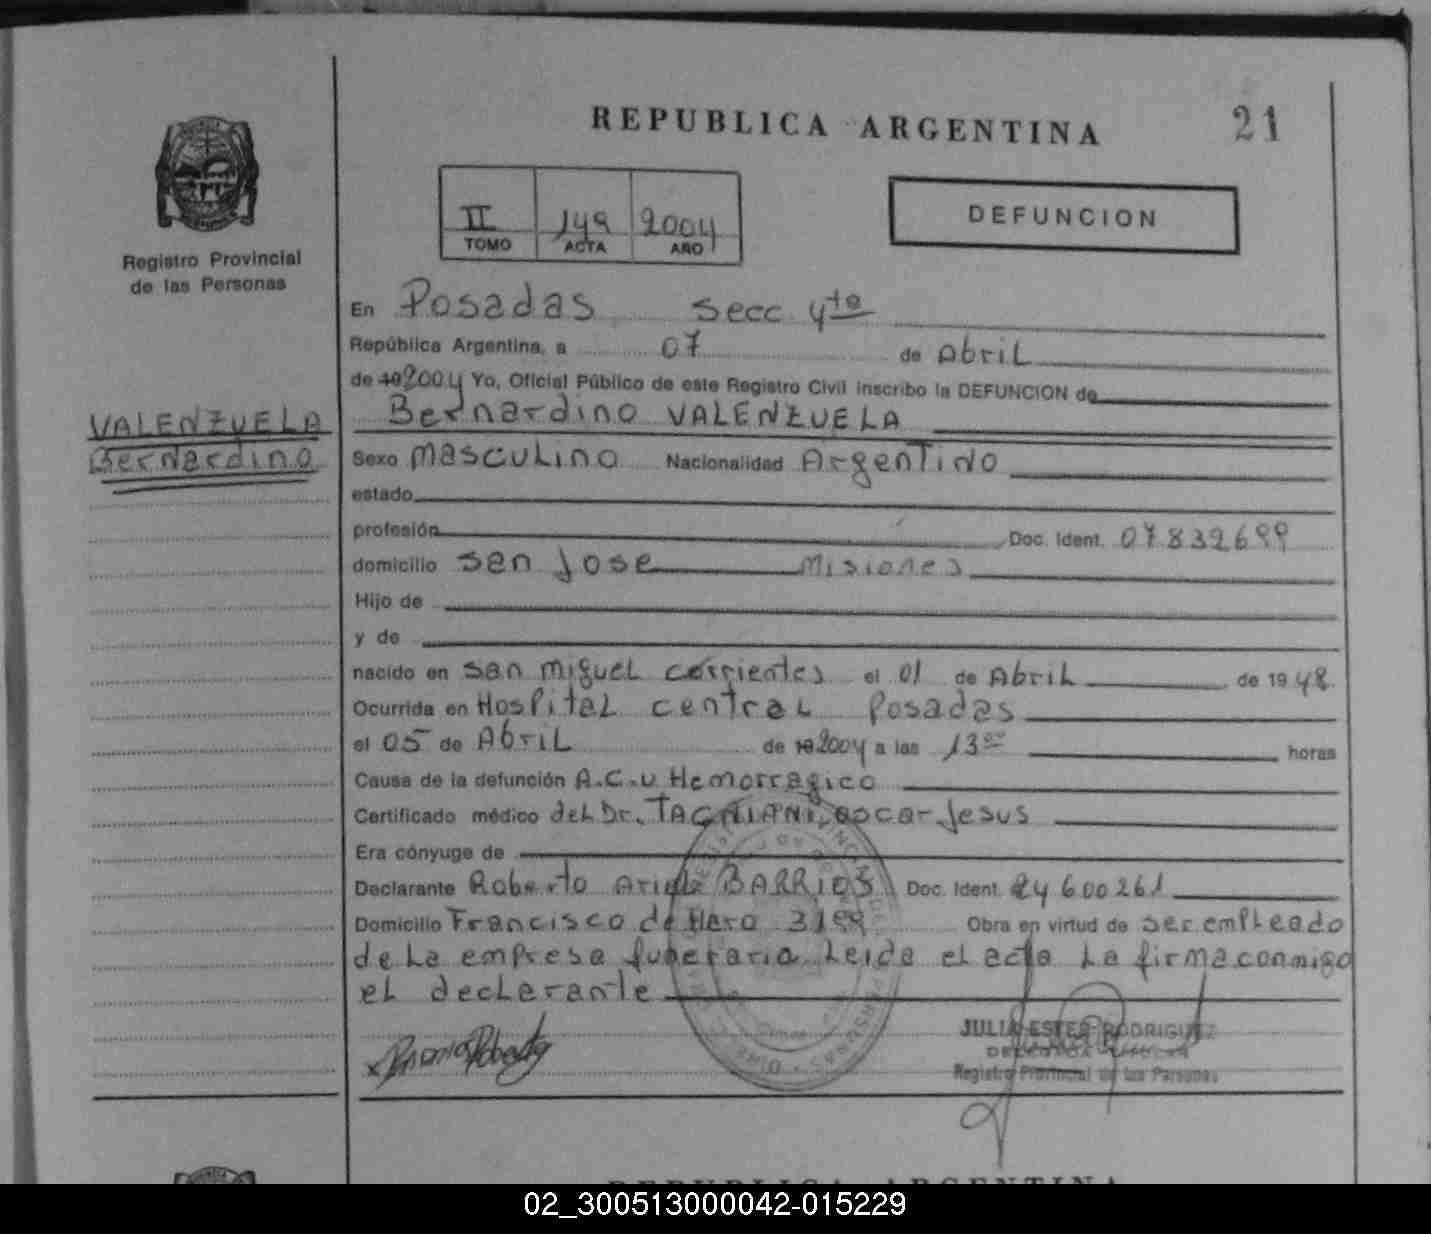 REPUBLICA ARGENTINA
21
Registro Provincial
de las Personas
II 149 2004
TOMO ACTA AÑO
DEFUNCION
VALENZUELA
Bernardino
En Posadas secc 4ta
República Argentina, a 07 de Abril
de 19 2004 Yo, Oficial Público de este Registro Civil inscribo la DEFUNCION de
Bernardino VALENZUELA
Sexo masculino Nacionalidad Argentino
estado
profesión Doc. Ident. 07832699
domicilio san jose misiones
Hijo de
y de
nacido en san miguel corrientes el 01 de Abril de 1948
Ocurrida en Hospital central Posadas
el 05 de Abril de 19 2004 a las 13 00 horas
Causa de la defunción A.C.V Hemorragico
Certificado médico del Dr. oscar Jesus
Era cónyuge de
Declarante Roberto Ariel BARRIOS Doc. Ident. 24600261
Domicilio Francisco de Haro
Obra en virtud de ser empleado
de la empresa funeraria Leida el acta La firma conmigo
el declarante
JULIA ESTER RODRIGUEZ
Registro Provincial de las Personas
REPUBLICA ARGENTINA
02_300513000042-015229